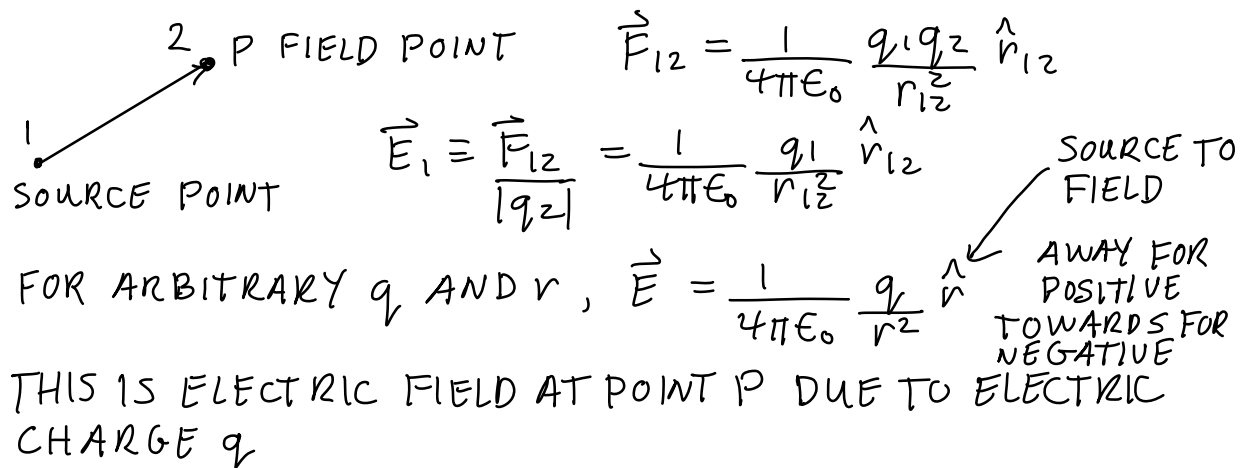 2 P FIELD POINT
F⃗₁₂ = 1/(4πϵ₀) q₁q₂/r₁₂² r̂₁₂
1
SOURCE POINT
E⃗₁ ≡ F⃗₁₂/|q₂| = 1/(4πϵ₀) q₁/r₁₂² r̂₁₂
SOURCE TO
FIELD
FOR ARBITRARY q AND r, E⃗ = 1/(4πϵ₀) q/r² r̂
AWAY FOR
POSITIVE
TOWARDS FOR
NEGATIVE
THIS IS ELECTRIC FIELD AT POINT P DUE TO ELECTRIC
CHARGE q